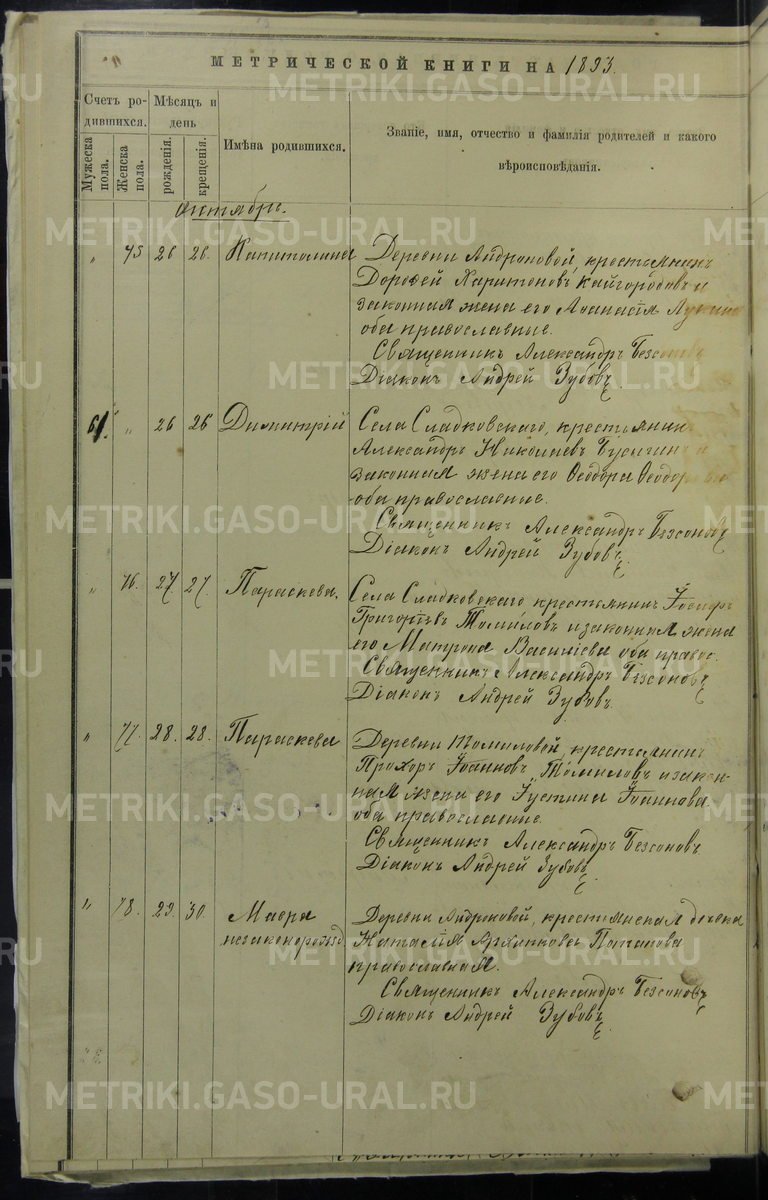 МЕТРИЧЕСКОЙ КНИГИ НА 1893.
Счетъ ро-
дившихся.
Мѣсяцъ и
день
Мужеска
пола.
Женска
пола.
рожденія.
крещенія.
Имѣна родившихся.
Званіе, имя, отчество и фамилія родителей и какого
вѣроисповѣданія.
Октябрь.
" 75 26 26. Капитолина
Деревни Андроновой, крестьянинъ
Дорофей Харитоновъ Кайгородовъ и
законная жена его Аѳанасія
оба православные.
Священникъ Александръ Безсоновъ
Діаконъ Андрей Зубовъ
61. " 26 26 Димитрій
Села Сладковскаго, крестьянинъ
Александръ Николаевъ и
законная жена его Ѳеодора
оба православные.
Священникъ Александръ Безсоновъ
Діаконъ Андрей Зубовъ
" 76. 27. 27. Параскева.
Села Сладковскаго крестьянинъ Іосифъ
Григоріевъ Томиловъ и законная жена
его Матрона Василіева оба правос.
Священникъ Александръ Безсоновъ
Діаконъ Андрей Зубовъ.
" 77. 28. 28. Параскева
Деревни Томиловой, крестьянинъ
Прохоръ Іоанновъ Томиловъ и закон-
ная жена его Іустина Іоаннова
оба православные.
Священникъ Александръ Безсоновъ
Діаконъ Андрей Зубовъ
" 78. 29. 30. Мавра
незаконорожд
Деревни Андроновой, крестьянская девка
Наталія Архипова Патапова
православная.
Священникъ Александръ Безсоновъ
Діаконъ Андрей Зубовъ
METRIKI.GASO-URAL.RU